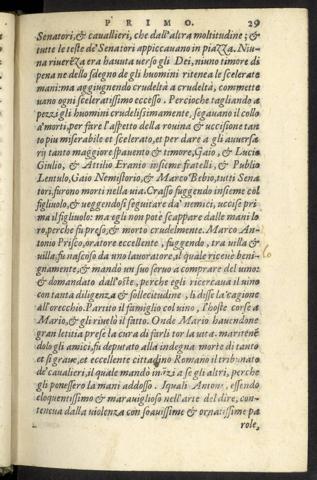 PRIMO. 29
Senatori, & cavallieri, che dall'altra moltitudine; &
tutte le teste de' Senatori appiccavano in piazza. Niu-
na riverēza era havuta verso gli Dei, niuno timore di
pena ne dello sdegno de gli huomini ritenea le scelerate
mani: ma aggiugnendo crudeltà a crudeltà, commette
vano ogni sceleratissimo eccesso. Percioche tagliando a
pezzi gli huomini crudelissimamente, segavano il collo
a' morti, per fare l'aspetto della rovina & uccisione tan
to piu miserabile et scelerato, et per dare a gli auversa
rij tanto maggiore spavento & timore, Gaio, & Lucio
Giulio, & Attilio Eranio insieme fratelli, & Publio
Lentulo, Gaio Nemistorio, & Marco Bebio, tutti Sena
tori, furono morti nella via. Crasso fuggendo insieme col
figliuolo, & veggendosi seguitare da' nemici, uccise pri
ma il figliuolo: ma egli non potè scappare dalle mani lo
ro, perche fu preso, & morto crudelmente. Marco An-
tonio Prisco, oratore eccellente, fuggendo, tra villa &
villa fu nascoso da uno lavoratore, il quale riceuè beni-
gnamente, & mandò un suo servo a comprare del vino:
& domandato dall'oste, perche egli ricercava il vino
con tanta diligenza & sollecitudine, li disse la cagione
all'orecchio. Partito il famiglio col vino, l'hoste corse a
Mario, & gli rivelò il fatto. Onde Mario havendone
gran letitia prese la cura di farli tor la vita. ma ritenē
dolo gli amici, fu deputato alla indegna morte di tanto
et si grave, et eccellente cittadino Romano il tribunato
de' cavalieri, il quale mandò inā̄zi a se gli altri, perche
gli ponessero la mani addosso. I quali Anton', essendo
eloquentissimo & maraviglioso nell'arte del dire, con-
tenea dalla violenza con soavissime & ornatissime pa
role,